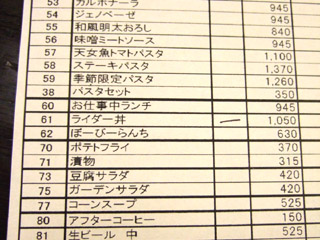 53 カルボナーラ
54 ジェノベーゼ 945
55 和風明太おろし 840
56 味噌ミートソース 945
57 天女魚トマトパスタ 1,100
58 ステーキパスタ 1,370
59 季節限定パスタ 1,260
38 パスタセット 350
60 お仕事中ランチ 945
61 ライダー丼 1,050
62 ぼーびーらんち 630
70 ポテトフライ 370
71 漬物 315
73 豆腐サラダ 420
75 ガーデンサラダ 420
77 コーンスープ 525
80 アフターコーヒー 150
81 生ビール 中 525